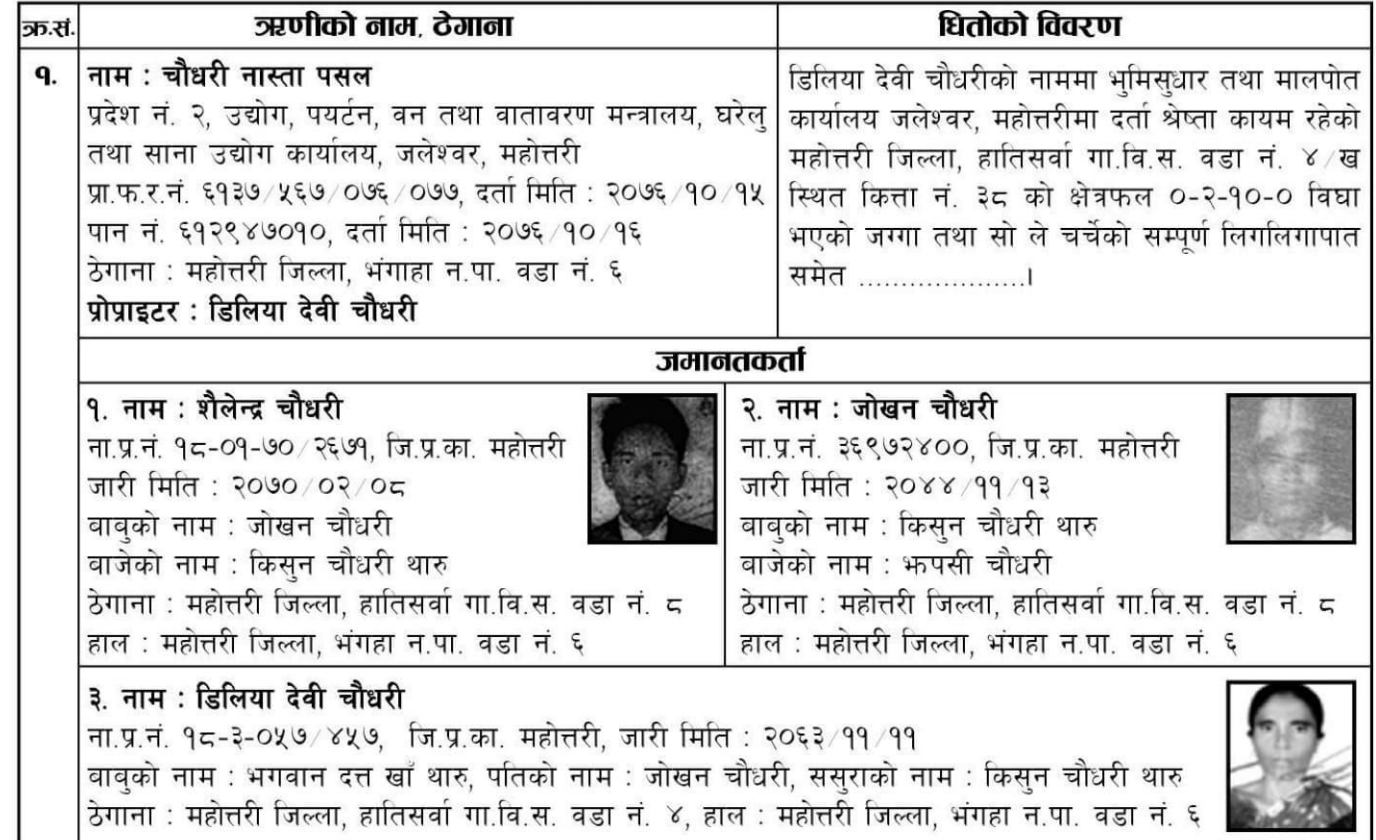 क्र.सं.
ऋणीको नाम, ठेगाना
धितोको विवरण
१.
नाम : चौधरी नास्ता पसल
प्रदेश नं. २, उद्योग, पर्यटन, वन तथा वातावरण मन्त्रालय, घरेलु
तथा साना उद्योग कार्यालय, जलेश्वर, महोत्तरी
प्रा.फ.र.नं. ६१३७/५६७/०७६/०७७, दर्ता मिति : २०७६/१०/१५
पान नं. ६१२९४७०१०, दर्ता मिति : २०७६/१०/१६
ठेगाना : महोत्तरी जिल्ला, भंगाहा न.पा. वडा नं. ६
प्रोप्राइटर : डिलिया देवी चौधरी
डिलिया देवी चौधरीको नाममा भुमिसुधार तथा मालपोत
कार्यालय जलेश्वर, महोत्तरीमा दर्ता श्रेष्ता कायम रहेको
महोत्तरी जिल्ला, हातिसर्वा गा.वि.स. वडा नं. ४/ख
स्थित कित्ता नं. ३८ को क्षेत्रफल ०-२-१०-० विघा
भएको जग्गा तथा सो ले चर्चेको सम्पूर्ण लिगलिगापात
समेत .....................।
जमानतकर्ता
१. नाम : शैलेन्द्र चौधरी
ना.प्र.नं. १८-०१-७०/२६७१, जि.प्र.का. महोत्तरी
जारी मिति : २०७०/०२/०८
बाबुको नाम : जोखन चौधरी
बाजेको नाम : किसुन चौधरी थारु
ठेगाना : महोत्तरी जिल्ला, हातिसर्वा गा.वि.स. वडा नं. ८
हाल : महोत्तरी जिल्ला, भंगहा न.पा. वडा नं. ६
२. नाम : जोखन चौधरी
ना.प्र.नं. ३६९७२४००, जि.प्र.का. महोत्तरी
जारी मिति : २०४४/११/१३
बाबुको नाम : किसुन चौधरी थारु
बाजेको नाम : झपसी चौधरी
ठेगाना : महोत्तरी जिल्ला, हातिसर्वा गा.वि.स. वडा नं. ८
हाल : महोत्तरी जिल्ला, भंगहा न.पा. वडा नं. ६
३. नाम : डिलिया देवी चौधरी
ना.प्र.नं. १८-३-०५७/४५७, जि.प्र.का. महोत्तरी, जारी मिति : २०६३/११/११
बाबुको नाम : भगवान दत्त खाँ थारु, पतिको नाम : जोखन चौधरी, ससुराको नाम : किसुन चौधरी थारु
ठेगाना : महोत्तरी जिल्ला, हातिसर्वा गा.वि.स. वडा नं. ४, हाल : महोत्तरी जिल्ला, भंगहा न.पा. वडा नं. ६